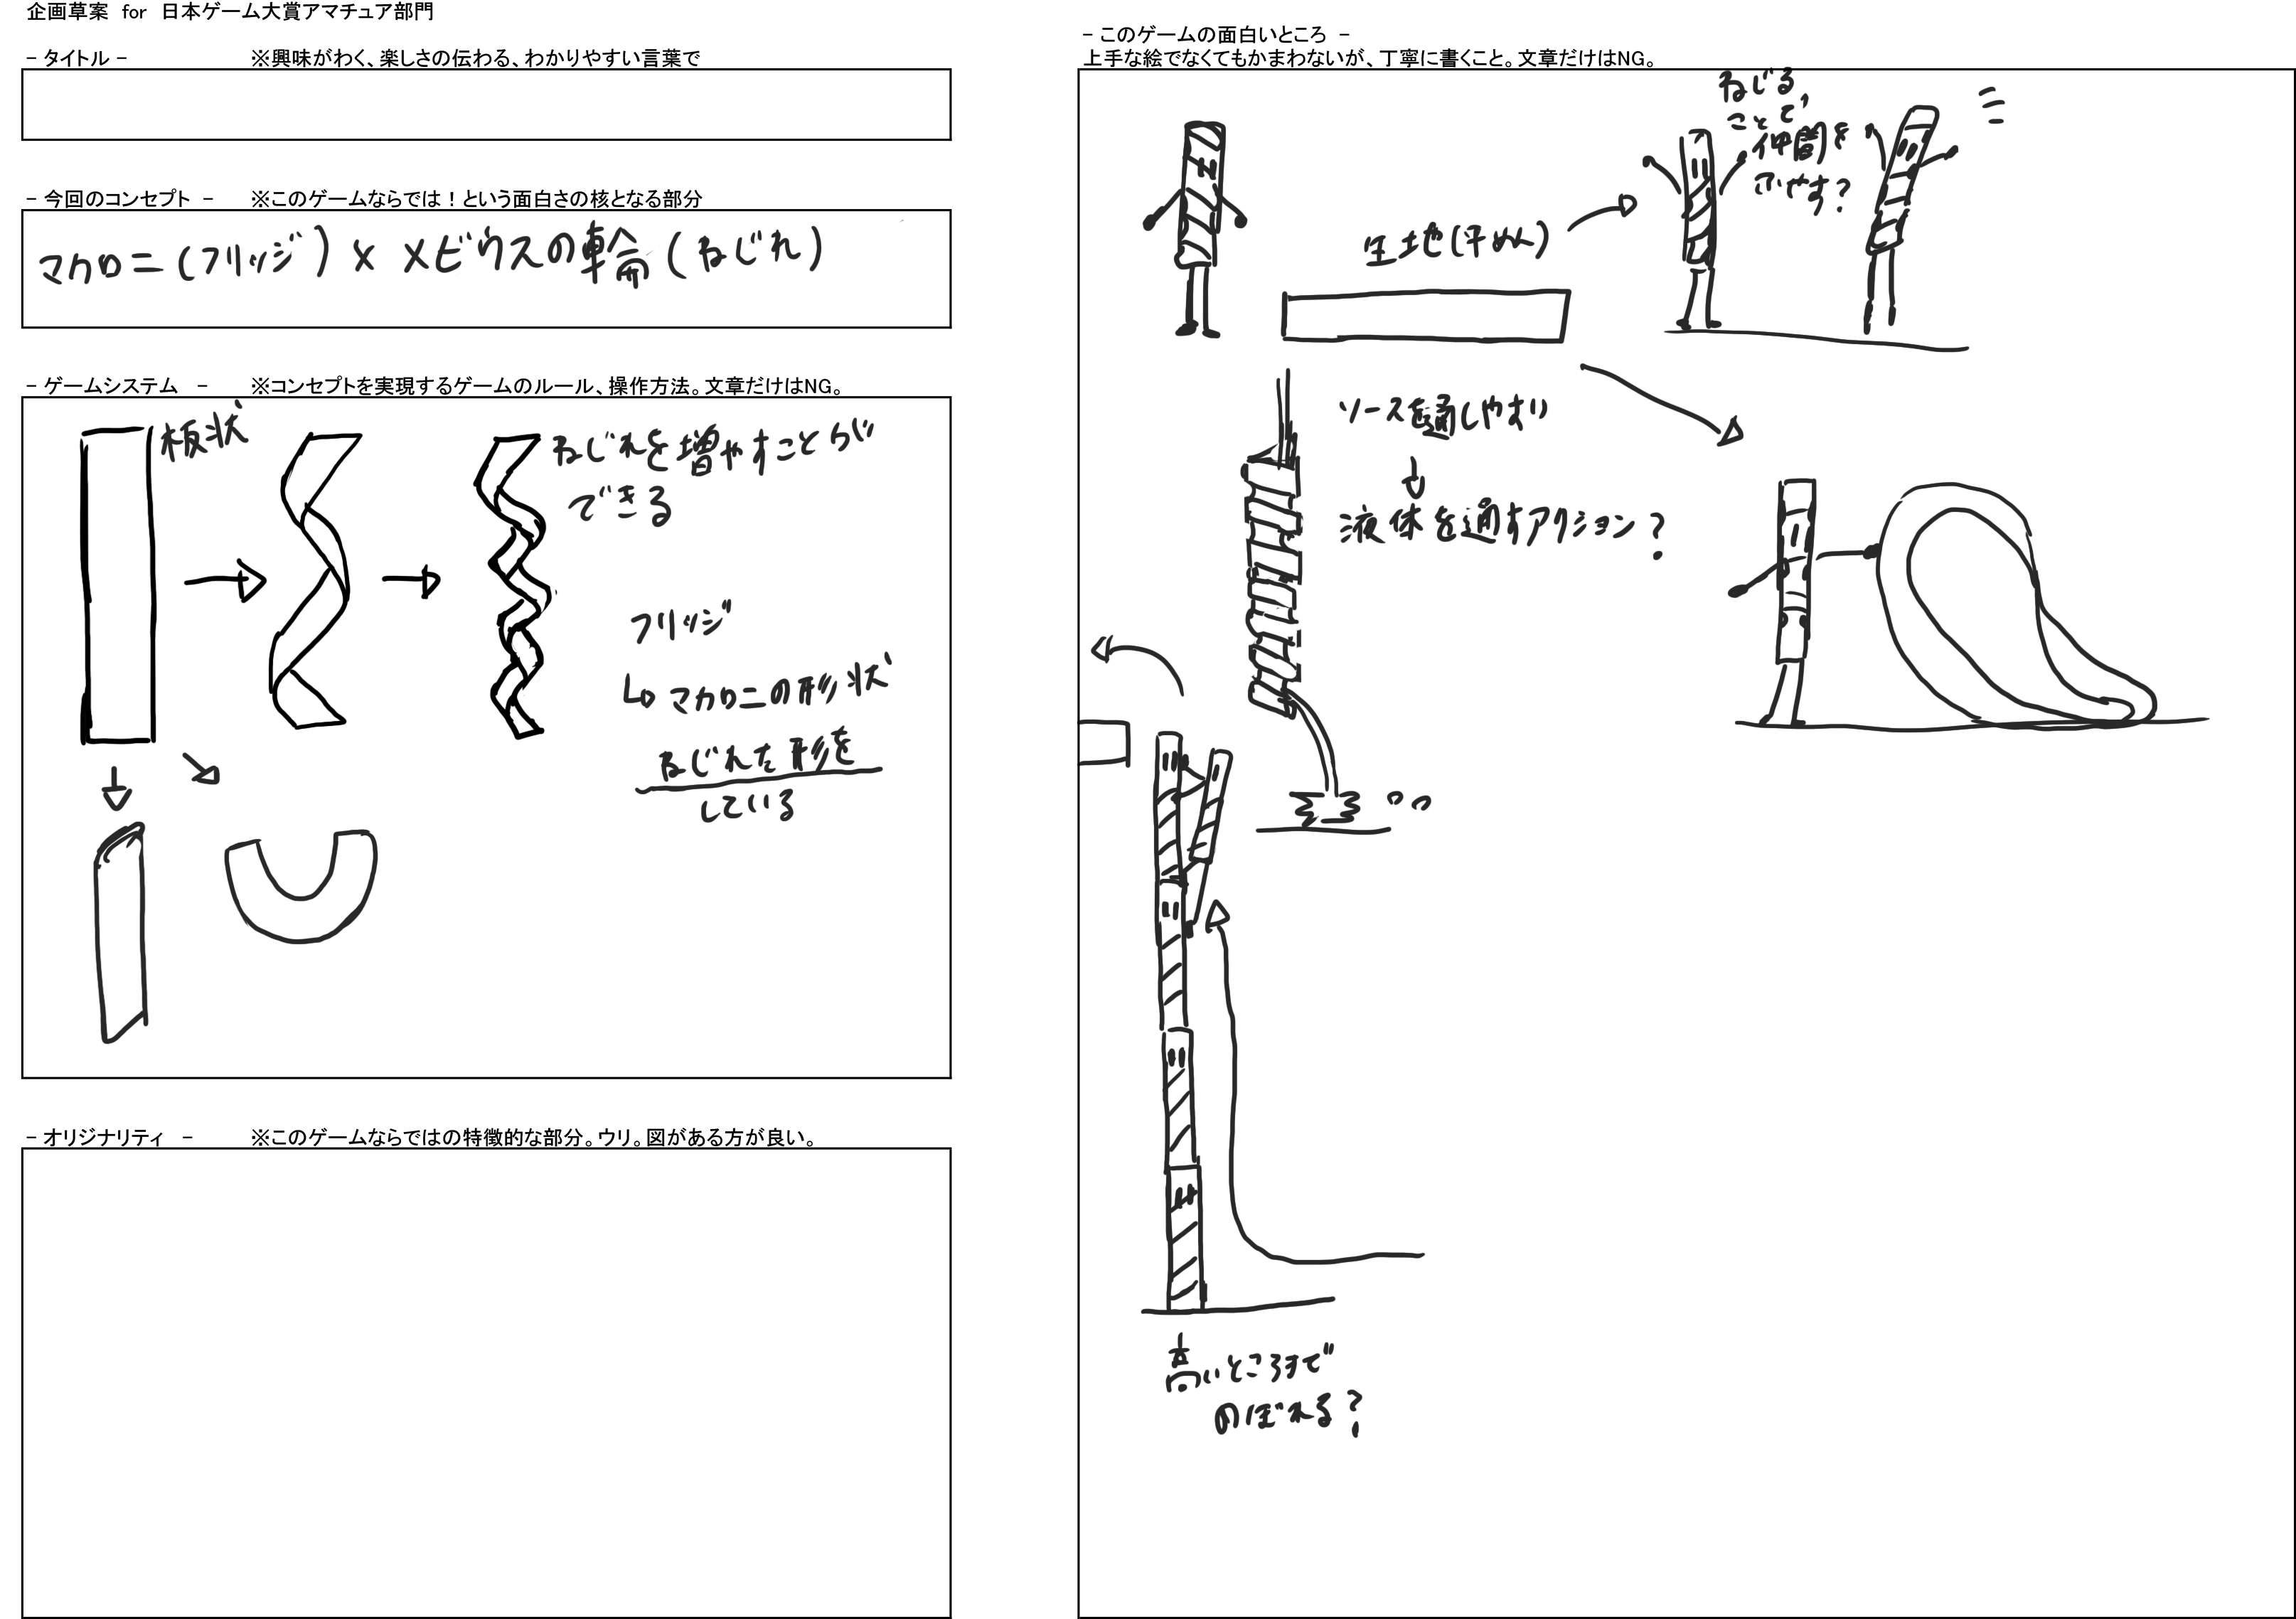 企画草案 for 日本ゲーム大賞アマチュア部門
- タイトル -
※興味がわく、楽しさの伝わる、わかりやすい言葉で
- 今回のコンセプト -
※このゲームならでは！という面白さの核となる部分
マカロニ(フリッジ) × メビウスの輪(ねじれ)
- ゲームシステム -
※コンセプトを実現するゲームのルール、操作方法。文章だけはNG。
板状
ねじれを増やすことが
できる
フリッジ
マカロニの形状
ねじれた形を
している
- オリジナリティ -
※このゲームならではの特徴的な部分。ウリ。図がある方が良い。
- このゲームの面白いところ -
上手な絵でなくてもかまわないが、丁寧に書くこと。文章だけはNG。
ねじる
ことで、
仲間を
ふやす?
生地(平めん)
ソースを通しやすい
液体を通すアクション?
高いところまで
のぼれる?